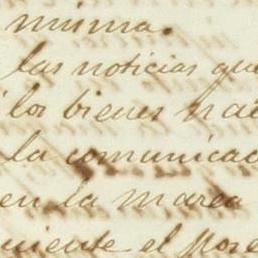 misma.
las noticias que
los bienes nac
la comunicac
en la marca
niente el More